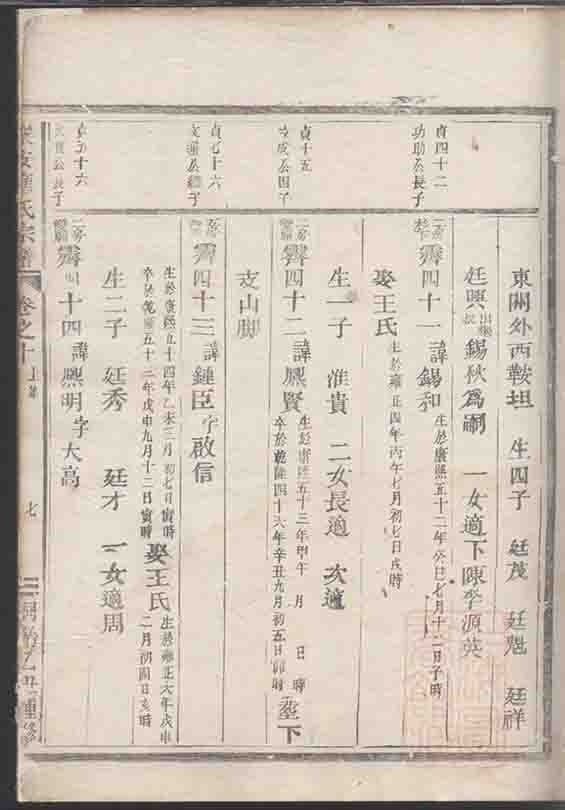 東關外西鞍坦 生四子 廷茂 廷魁 廷祥
廷興出繼 錫秋為嗣 一女適下陳李源英
貞四十二
功助公長子
霽四十一 諱錫和 生於康熙五十二年癸巳七月十二日子時
娶王氏 生於雍正四年丙午七月初七日戌時
生一子 淮貴 二女長適 次適
貞十五
文成公四子
霽四十二 諱熙賢 生於康熙五十三年甲午 月 日 時
卒於乾隆四十六年辛丑九月初五日卯時 塟下
支山脚
貞七十六
文運公繼子
霽四十三 諱鍾臣 字啟信
生於康熙五十四年乙未三月初七日寅時
卒於乾隆五十三年戊申九月十二日寅時 娶王氏 生於雍正六年戊申
二月初四日亥時
生二子 廷秀 廷才 一女適周
貞五十六
公長子
霽四十四 諱熙明 字大高
氏宗譜
卷之十
七
乙丑重修